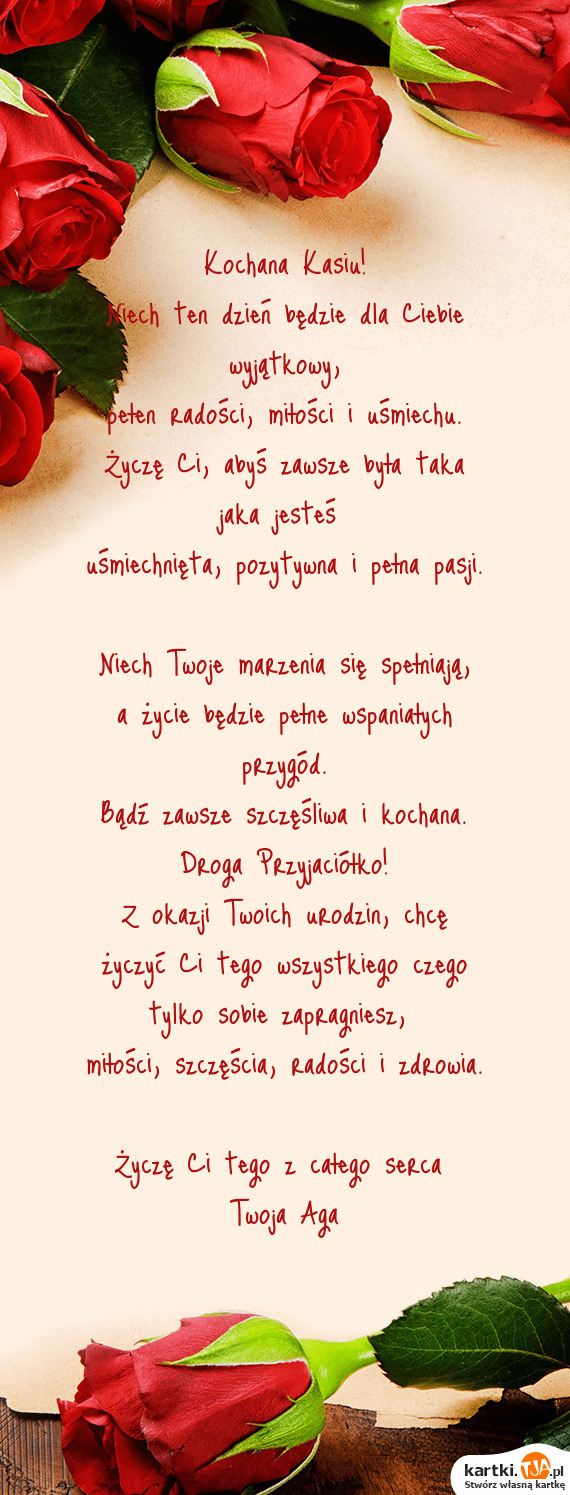 Kochana Kasiu!
Niech ten dzień będzie dla Ciebie
wyjątkowy,
pełen radości, miłości i uśmiechu.
Życzę Ci, abyś zawsze była taka
jaka jesteś
uśmiechnięta, pozytywna i pełna pasji.
Niech Twoje marzenia się spełniają,
a życie będzie pełne wspaniałych
przygód.
Bądź zawsze szczęśliwa i kochana.
Droga Przyjaciółko!
Z okazji Twoich urodzin, chcę
życzyć Ci tego wszystkiego czego
tylko sobie zapragniesz,
miłości, szczęścia, radości i zdrowia.
Życzę Ci tego z całego serca
Twoja Aga
kartki.TJA.pl
Stwórz własną kartkę